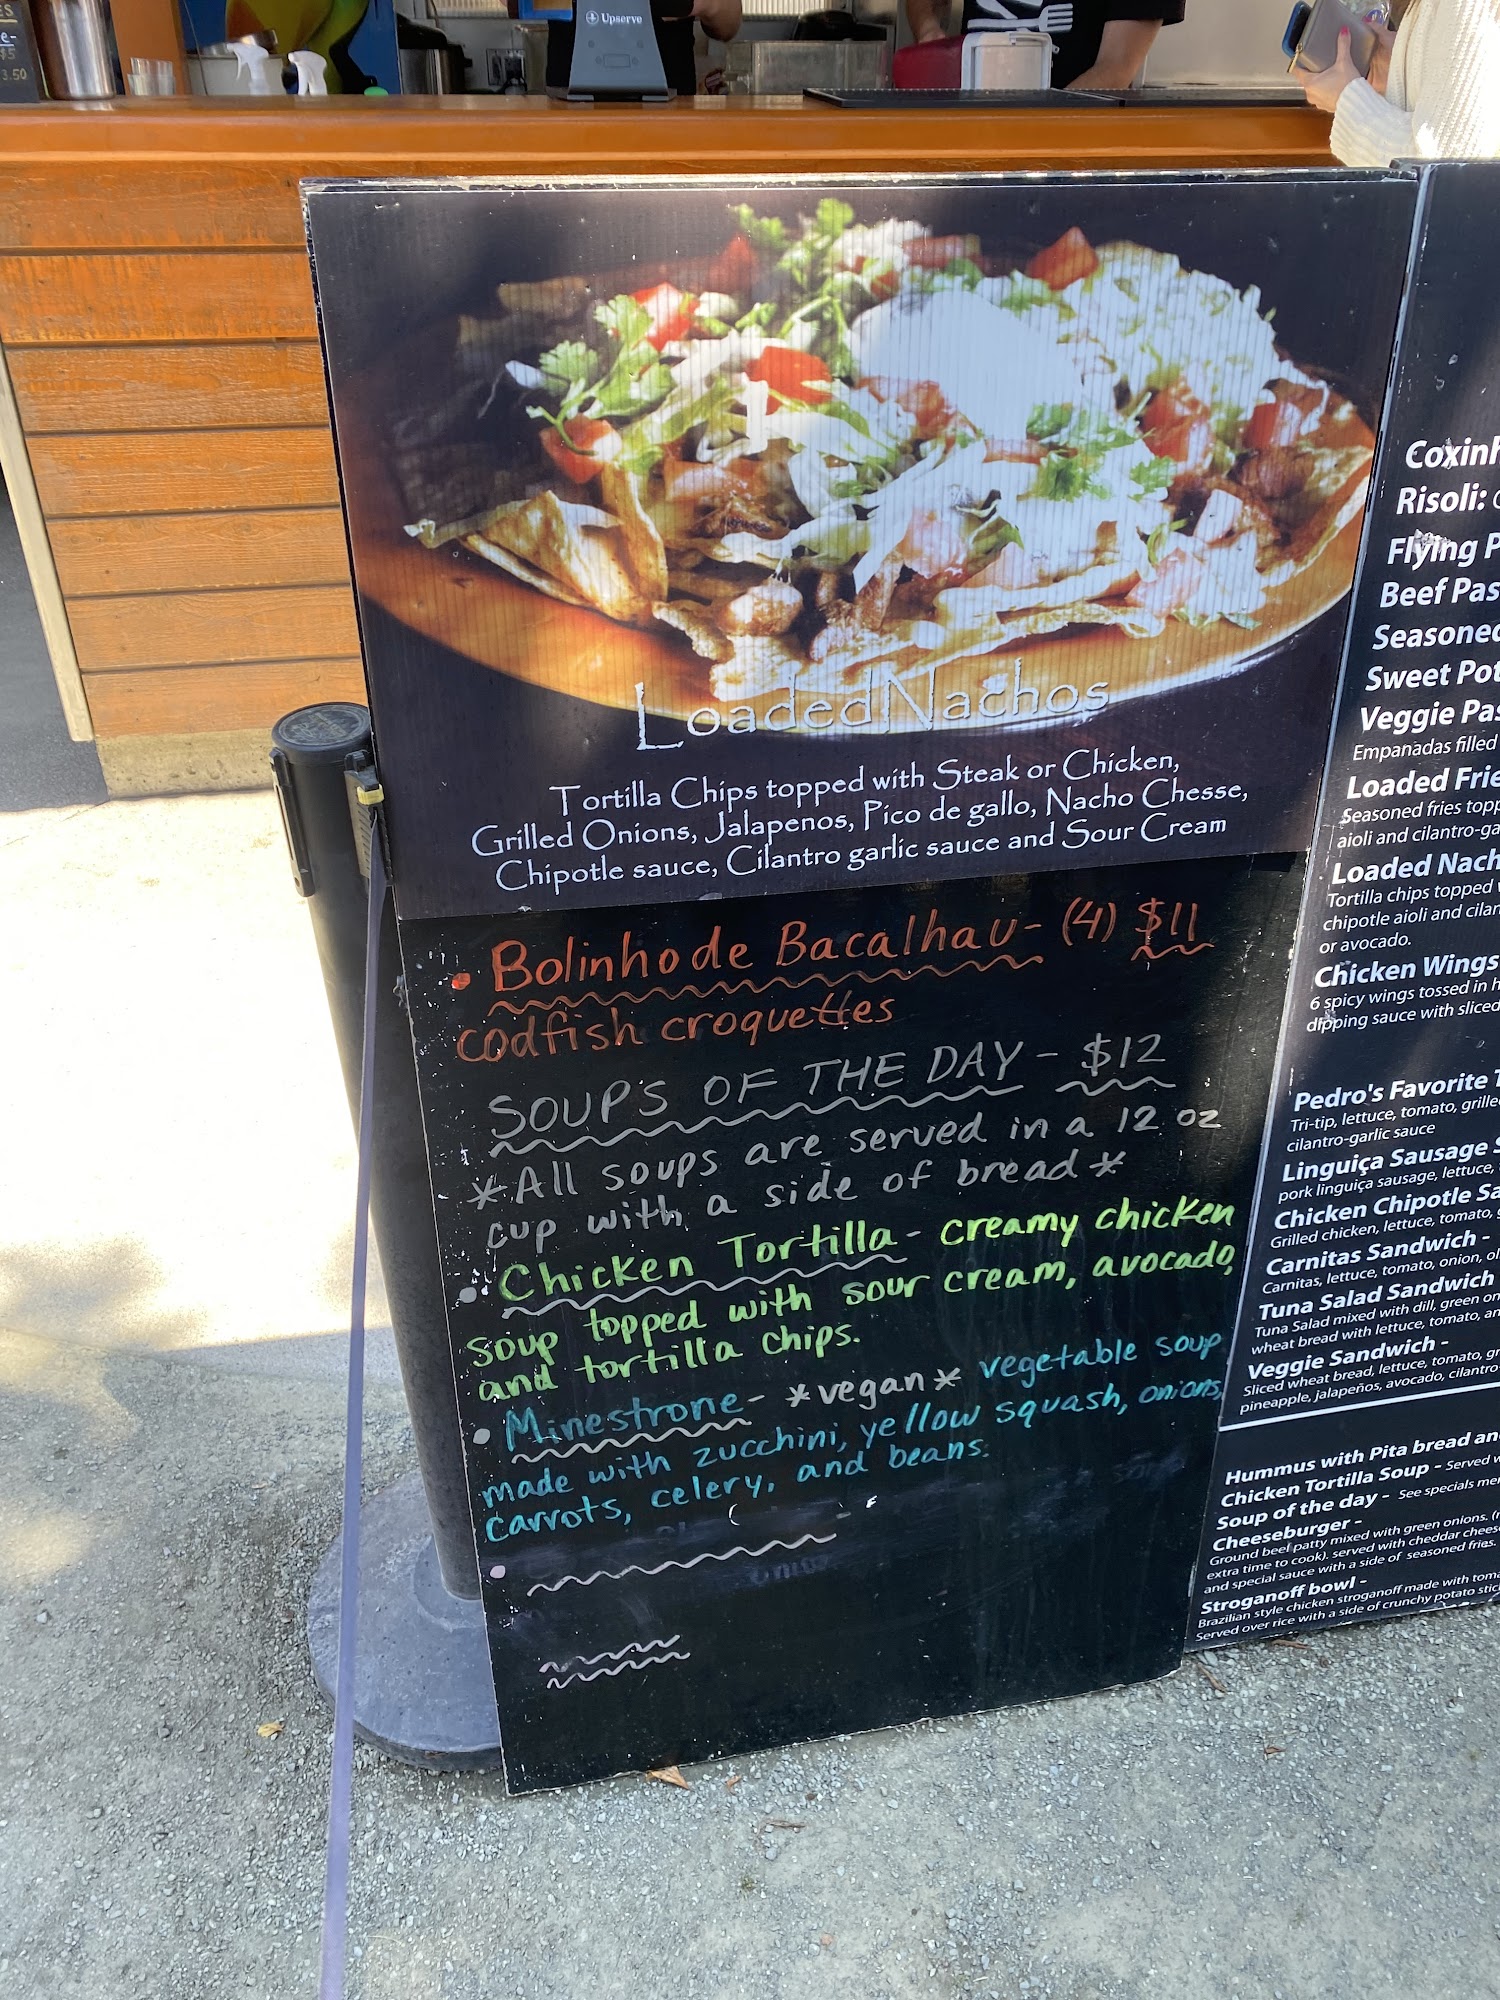 Upserve
LoadedNachos
Tortilla Chips topped with Steak or Chicken,
Grilled Onions, Jalapenos, Pico de gallo, Nacho Chesse,
Chipotle sauce, Cilantro garlic sauce and Sour Cream
• Bolinho de Bacalhau- (4) $11
codfish croquettes
SOUPS OF THE DAY - $12
*All soups are served in a 12 oz
cup with a side of bread*
• Chicken Tortilla- creamy chicken
soup topped with sour cream, avocado,
and tortilla chips.
• Minestrone- *vegan* vegetable soup
made with zucchini, yellow squash, onions,
carrots, celery, and beans.
Risoli:
Flying
Beef
Seasoned
Sweet
Veggie
Empanadas filled
Loaded
Seasoned fries
aioli and
Loaded
Tortilla chips topped
chipotle aioli and
or avocado.
Chicken Wings
6 spicy wings tossed in
dipping sauce with sliced
Pedro's Favorite
Tri-tip, lettuce, tomato,
cilantro-garlic sauce
Linguiça Sausage
pork linguiça sausage, lettuce,
Chicken Chipotle
Grilled chicken, lettuce, tomato,
Carnitas Sandwich -
Carnitas, lettuce, tomato, onion,
Tuna Salad Sandwich
Tuna Salad mixed with dill, green
wheat bread with lettuce, tomato,
Veggie Sandwich -
Sliced wheat bread, lettuce, tomato,
pineapple, jalapeños, avocado,
Hummus with Pita bread
Chicken Tortilla Soup - Served
Soup of the day - See specials
Cheeseburger -
Ground beef patty mixed with green onions.
extra time to cook). served with cheddar
and special sauce with a side of seasoned fries.
Stroganoff bowl -
Brazilian style chicken stroganoff made with
Served over rice with a side of crunchy potato